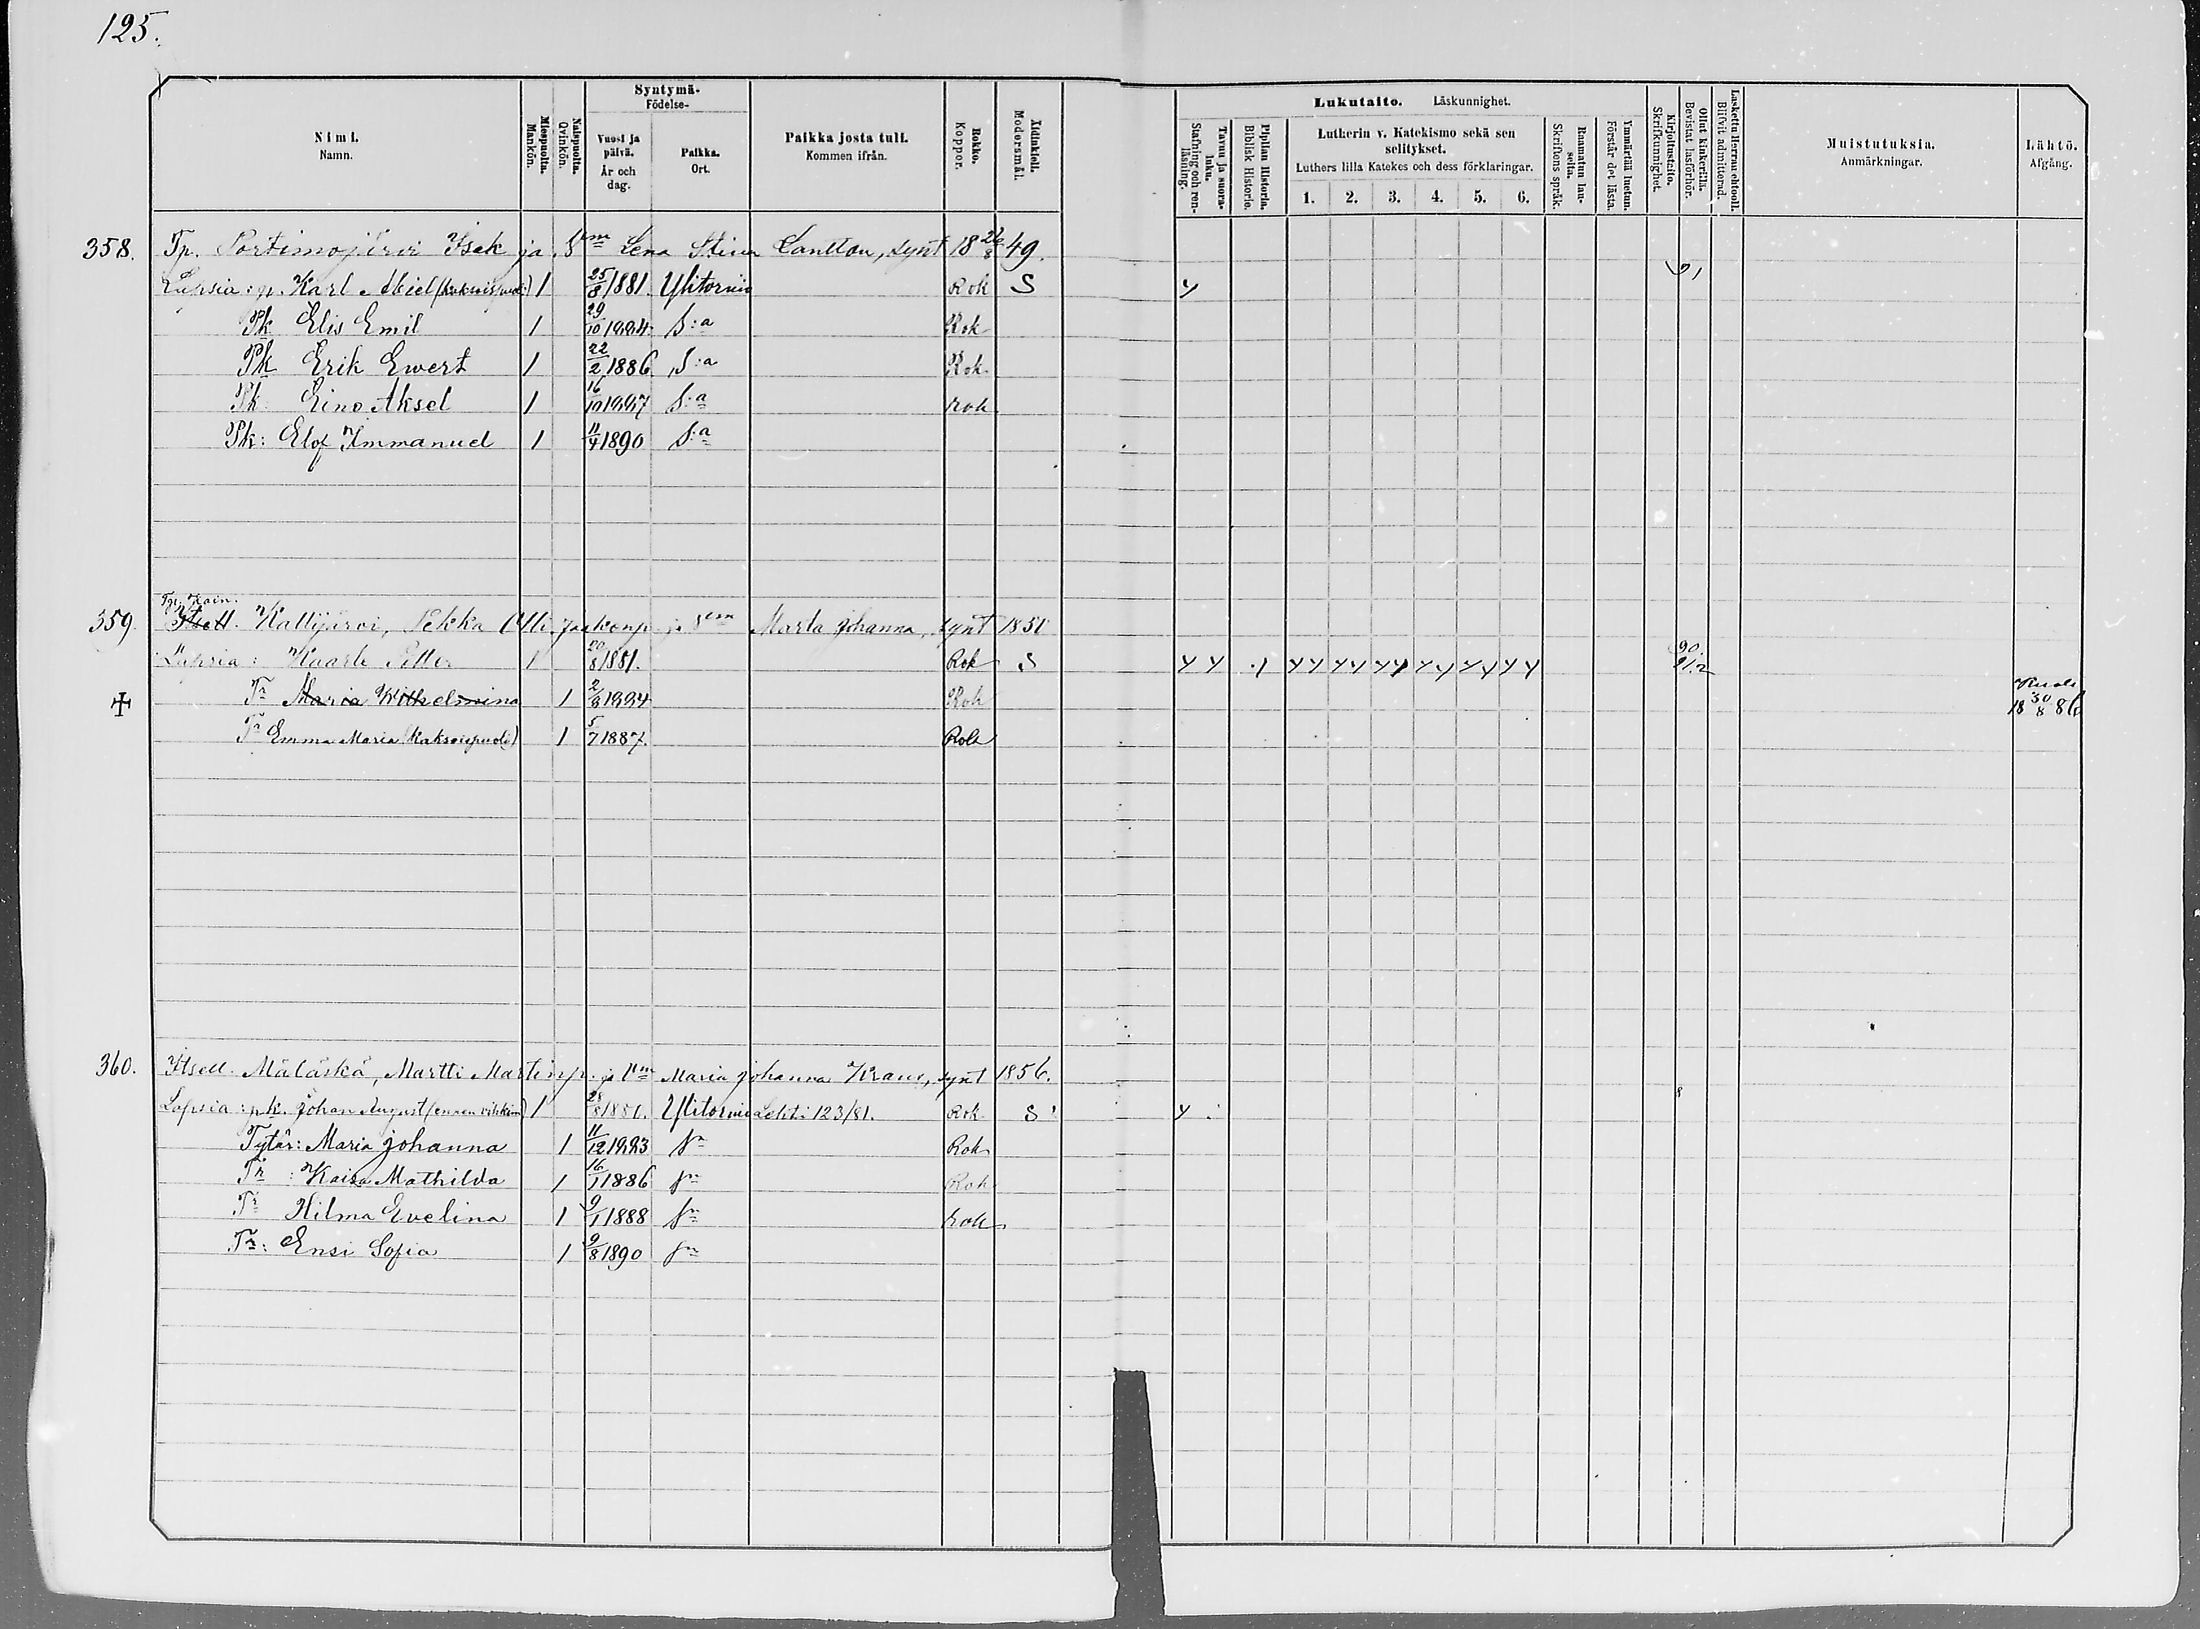 125.
Nimi.
Namn.
Miespuolta.
Mankön.
Naispuolta.
Qvinkön.
Syntymä-
Födelse-
Vuosi ja päivä.
År och dag.
Paikka.
Ort.
Paikka josta tuli.
Kommen ifrån.
Rokko.
Koppor.
Äidinkieli.
Modersmål.
Lukutaito. Läskunnighet.
Tavuu ja suora-luku.
Stafning och ren-läsning.
Piplian Historia.
Biblisk Historie.
Lutherin v. Katekismo sekä sen selitykset.
Luthers lilla Katekes och dess förklaringar.
1. 2. 3. 4. 5. 6.
Raamatun lauseita.
Skriftens språk.
Ymmärtää luetun.
Förstår det lästa.
Kirjoitustaito.
Skrifkunnighet.
Ollut kinkerillä.
Bevistat läsförhör.
Laskettu Herran ehtooll.
Blifvit admitterad.
Muistutuksia.
Anmärkningar.
Lähtö.
Afgång.
358. Tp. Portimojärvi Isak ja Vm Lena Stina Lantton, synt 18 26/8 49.
Lapsia: p. Karl Abiel 1 25/8 1881. Ylitornio Rok S y 91
Pk Elis Emil 1 29/10 1884 S:a Rok
Pk Erik Ewert 1 22/2 1886 S:a Rok
Pk Eino Aksel 1 16/10 1887 S:a rok
Pk: Elof Immanuel 1 11/4 1890 S:a
Tp. Kain.
359. Itsell. Kallijärvi, Pekka Olli Jaakonp. ja Vm Marta Johanna, synt 1851
Lapsia: Kaarle Petter 1 20/8 1881. Rok S y y . 1 y y y y y y y y y y y y 90. 91.2
Tr Maria Wilhelmina 1 2/8 1884 Rok Kuoli 18 30/8 86
Tr Emma Maria (kaksoispuoli) 1 5/7 1887. Rok
360. Itsell. Mäläskä, Martti Martinp. ja Vm Maria Johanna Krans, synt 1856.
Lapsia: pk. Johan August (ennen vihkim) 1 28/8 1881. Ylitornio Lehti 123/81. Rok S y 8
Tytär: Maria Johanna 1 11/12 1883 Sn Rok
Tr: Kaisa Mathilda 1 16/1 1886 Sn Rok
Tr Hilma Evelina 1 9/1 1888 Sn rok
Tr: Ensi Sofia 1 9/8 1890 Sn